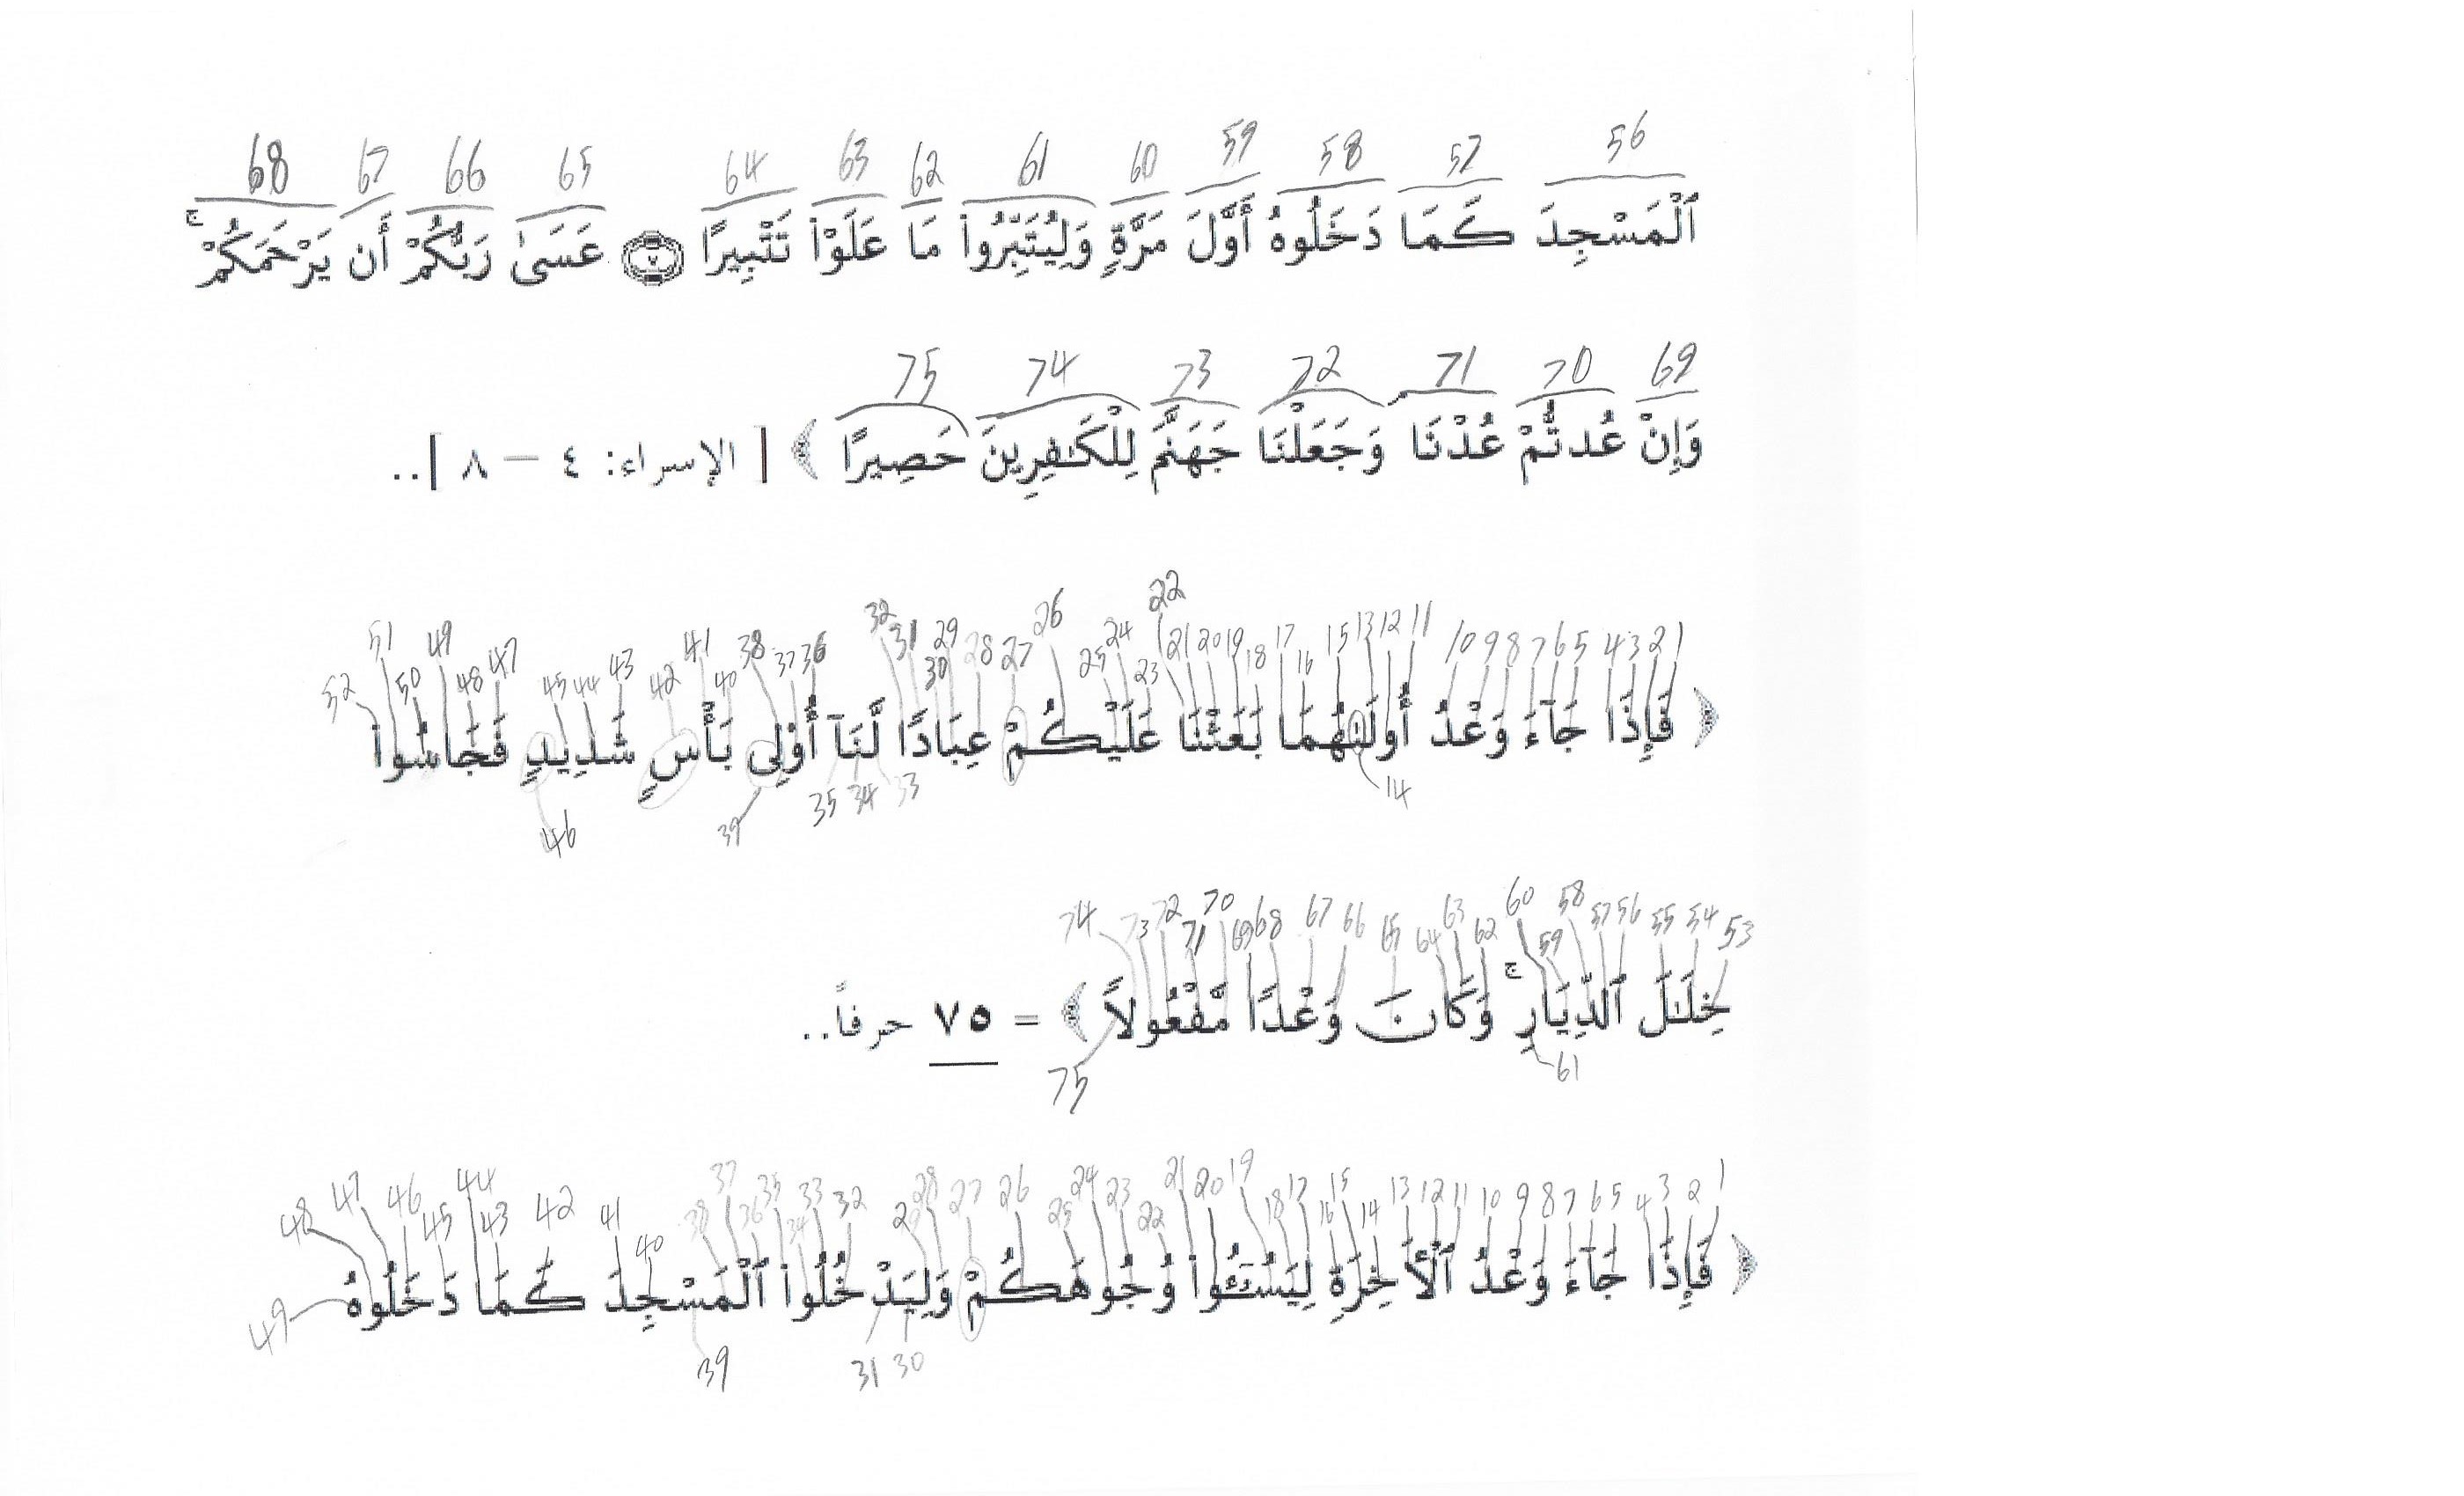 68 67 66 65 64 63 62 61 60 59 58 57 56
ٱلْمَسْجِدَ كَمَا دَخَلُوهُ أَوَّلَ مَرَّةٍ وَلِيُتَبِّرُوا۟ مَا عَلَوْا۟ تَتْبِيرًا ٧ عَسَىٰ رَبُّكُمْ أَن يَرْحَمَكُمْ ۚ
75 74 73 72 71 70 69
وَإِنْ عُدتُّمْ عُدْنَا وَجَعَلْنَا جَهَنَّمَ لِلْكَـٰفِرِينَ حَصِيرًا ﴾ [ الإسراء: ٤ – ٨ ]..
52 51 50 49 48 47 45 44 43 42 41 40 38 37 36 32 31 30 29 28 27 26 25 24 23 22 21 20 19 18 17 16 15 13 12 11 10 9 8 7 6 5 4 3 2 1
﴿ فَإِذَا جَآءَ وَعْدُ أُولَىٰهُمَا بَعَثْنَا عَلَيْكُمْ عِبَادًا لَّنَآ أُو۟لِى بَأْسٍ شَدِيدٍ فَجَاسُوا۟
46 39 35 34 33 14
74 73 72 71 70 69 68 67 66 65 64 63 62 60 59 58 57 56 55 54 53
خِلَـٰلَ ٱلدِّيَارِ ۚ وَكَانَ وَعْدًا مَّفْعُولاً ﴾ = ٧٥ حرفاً..
75 61
48 47 46 45 44 43 42 41 40 38 37 36 35 34 33 32 29 28 27 26 25 24 23 22 21 20 19 18 17 16 15 14 13 12 11 10 9 8 7 6 5 4 3 2 1
﴿ فَإِذَا جَآءَ وَعْدُ ٱلْأَخِرَةِ لِيَسُـۥٓـُٔوا۟ وُجُوهَكُمْ وَلِيَدْخُلُوا۟ ٱلْمَسْجِدَ كَمَا دَخَلُوهُ
49 39 31 30